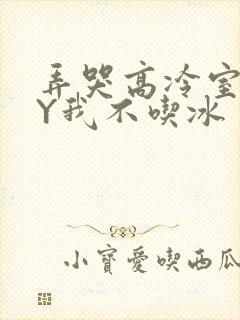 弄哭高冷室
Y我不喫冰
小寶愛喫西瓜